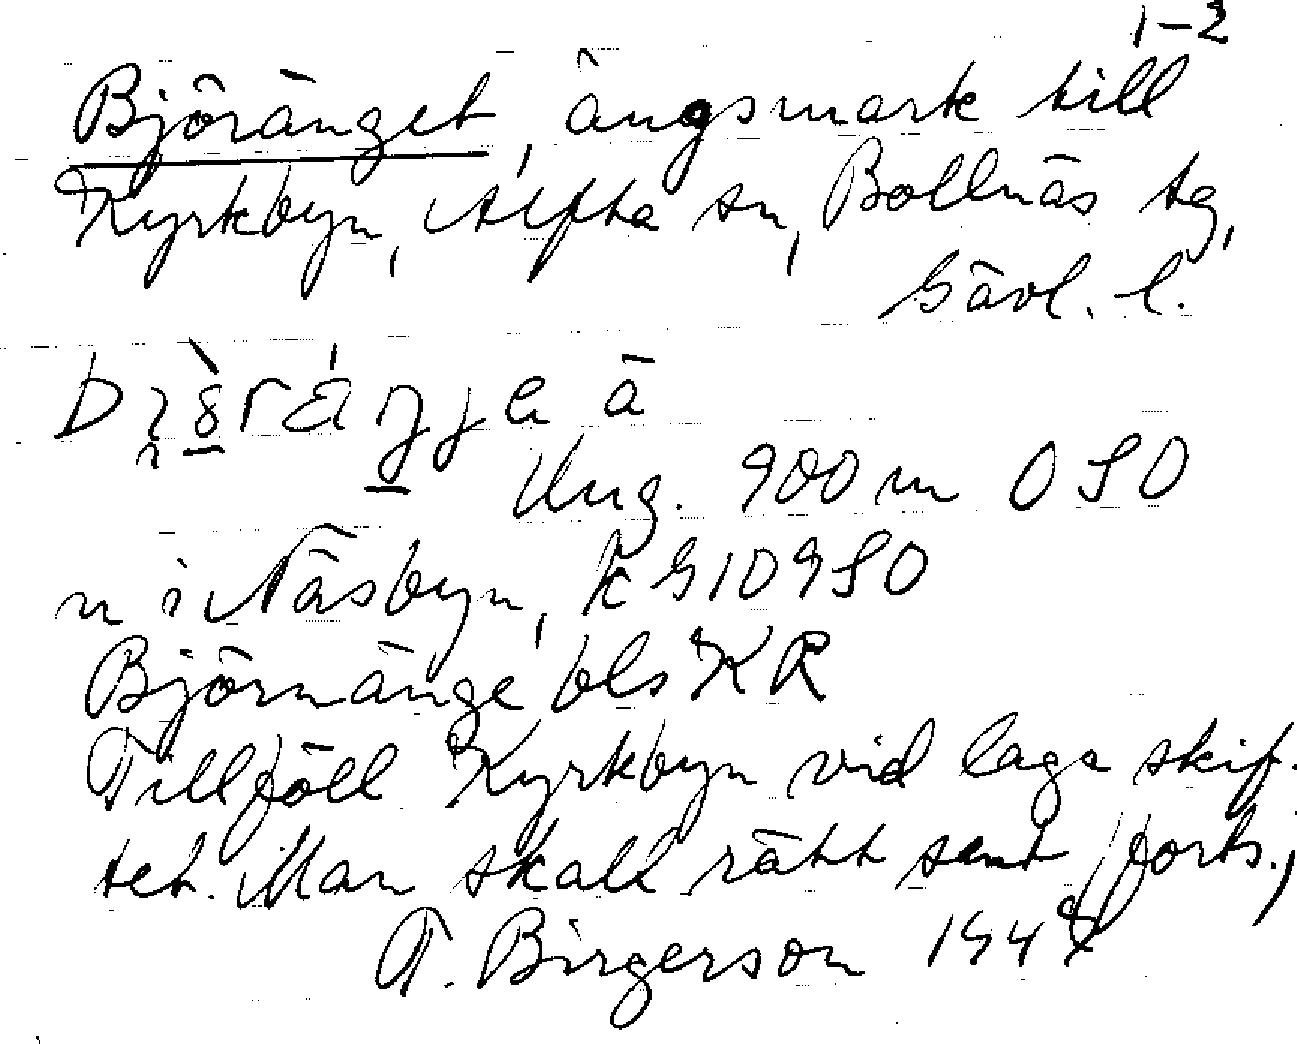 1-2
Björänget, ängsmark till
Kyrkbyn, Alfta sn, Bollnäs tg,
Gävl. l.
Ung. 900 m OSO
n i Näsbyn, k G1095O
Björnänge bls KR
Tillföll Kyrkbyn vid laga skif-
tet. Man skall rätt sent (forts.)
T. Birgerson 1948